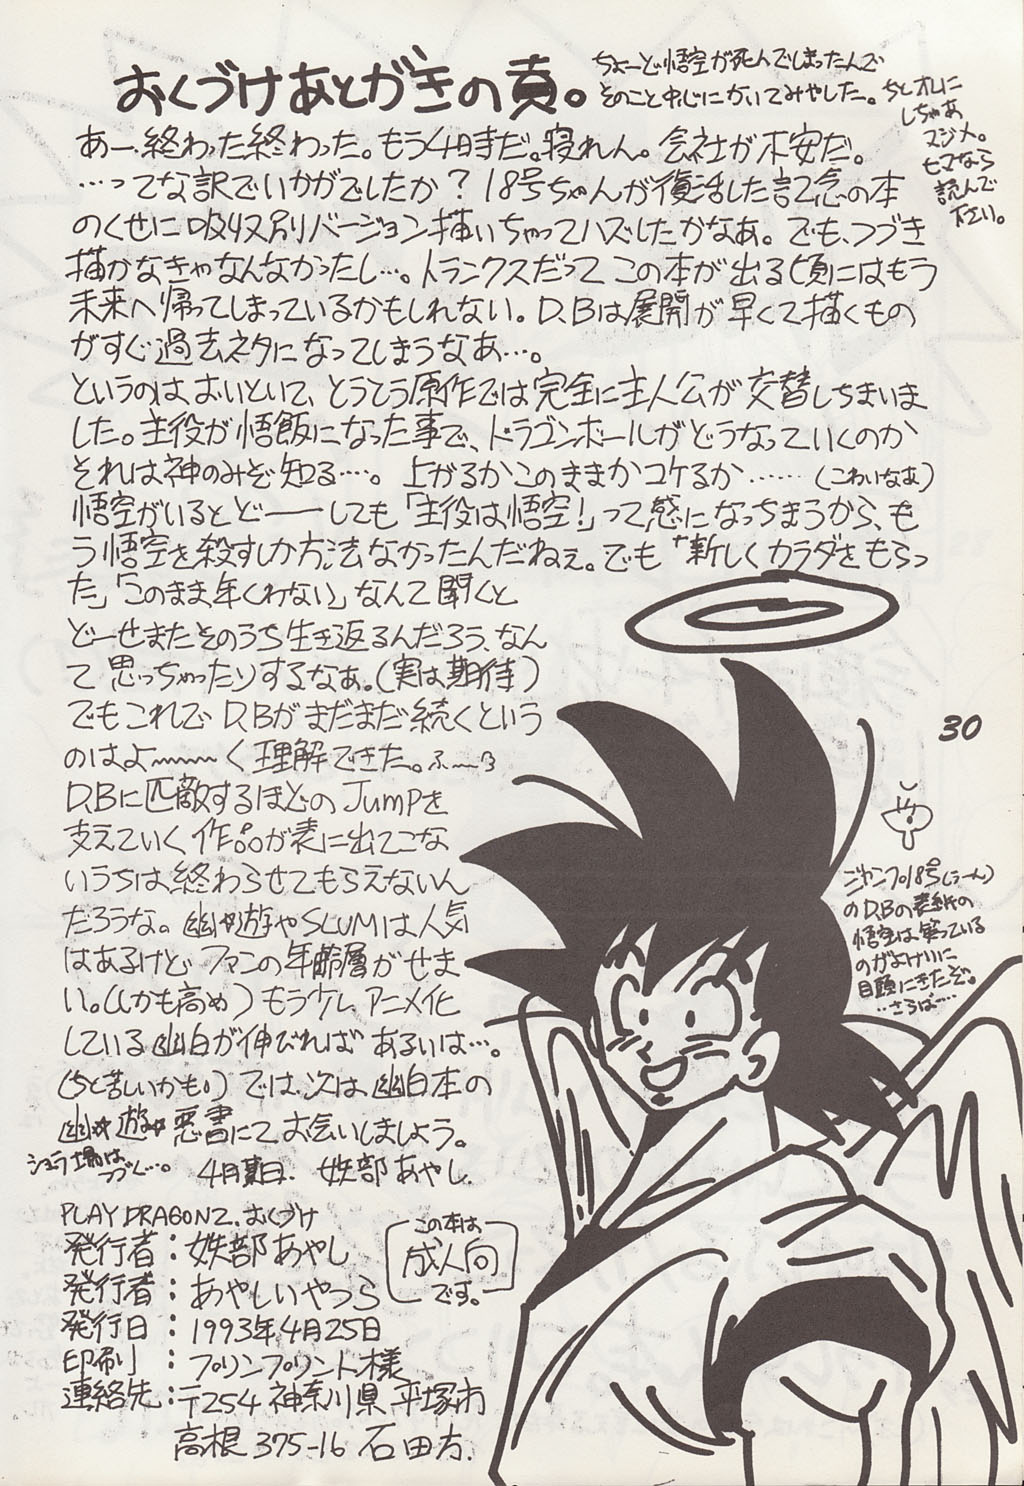 おくづけあとがきの頁。
ちょーど悟空が死んでしまったんで
そのこと中心にかいてみやした。
ちとオレに
しちゃあ
マジメ。
ヒマなら
読んで
下さい。
あー、終わった終わった。もう4時だ。寝れん。会社が不安だ。
…ってな訳でいかがでしたか？18号ちゃんが復活した記念の本
のくせに吸収別バージョン描いちゃってハズしたかなあ。でも、つづき
描かなきゃなんなかったし…。トランクスだってこの本が出る頃にはもう
未来へ帰ってしまっているかもしれない。D.Bは展開が早くて描くもの
がすぐ過去ネタになってしまうなあ…。
というのはおいといて、とうとう原作では完全に主人公が交替しちまいま
した。主役が悟飯になった事で、ドラゴンボールがどうなっていくのか
それは神のみぞ知る…。上がるかこのままかコケるか……（こわいなあ）
悟空がいるとどーーしても「主役は悟空！」って感になっちまうから、も
う悟空を殺すしか方法なかったんだねぇ。でも「新しくカラダをもらっ
た」「このまま年くわない」なんて聞くと
どーせまたそのうち生き返るんだろう、なん
て思っちゃったりするなあ。（実は期待）
でもこれでD.Bがまだまだ続くという
のはよ〜〜〜く理解できた。ふーっ
D.Bに匹敵するほどのJUMPを
支えていく作品が表に出てこな
いうちは終わらせてもらえないん
だろうな。幽☆遊やSLUMは人気
はあるけどファンの年齢層がせま
い。（しかも高め）もう少しアニメ化
している幽白が伸びればあるいは…。
（ちと苦しいかも。）では、次は幽白本の
幽☆遊☆悪書にてお会いしましょう。
シュラ場は
つづく…。
4月 日. 部あやし.
30
ジャンプ18号（うーん）
のD.Bの表紙の
悟空は笑っている
のがよけいに
目頭にきたぞ。
…さらば…
PLAY DRAGON2. おくづけ
発行者：部あやし
発行者：あやしいやつら
発行日：1993年4月25日
印刷：プリンプリント様
連絡先：〒254 神奈川県平塚市
高根375-16 石田方.
この本は
成人向
です。